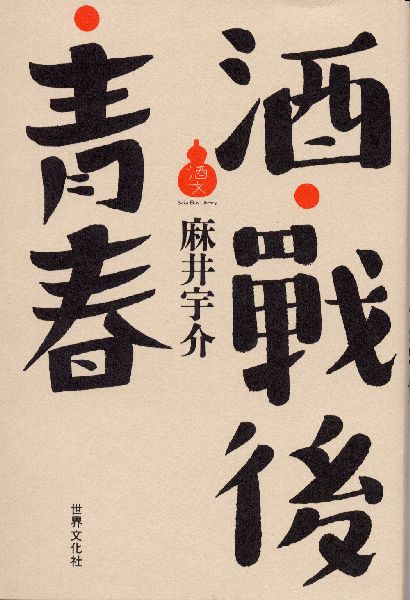 酒・戰後
・青春
酒文
Sake Bun Library
麻井宇介
世界文化社